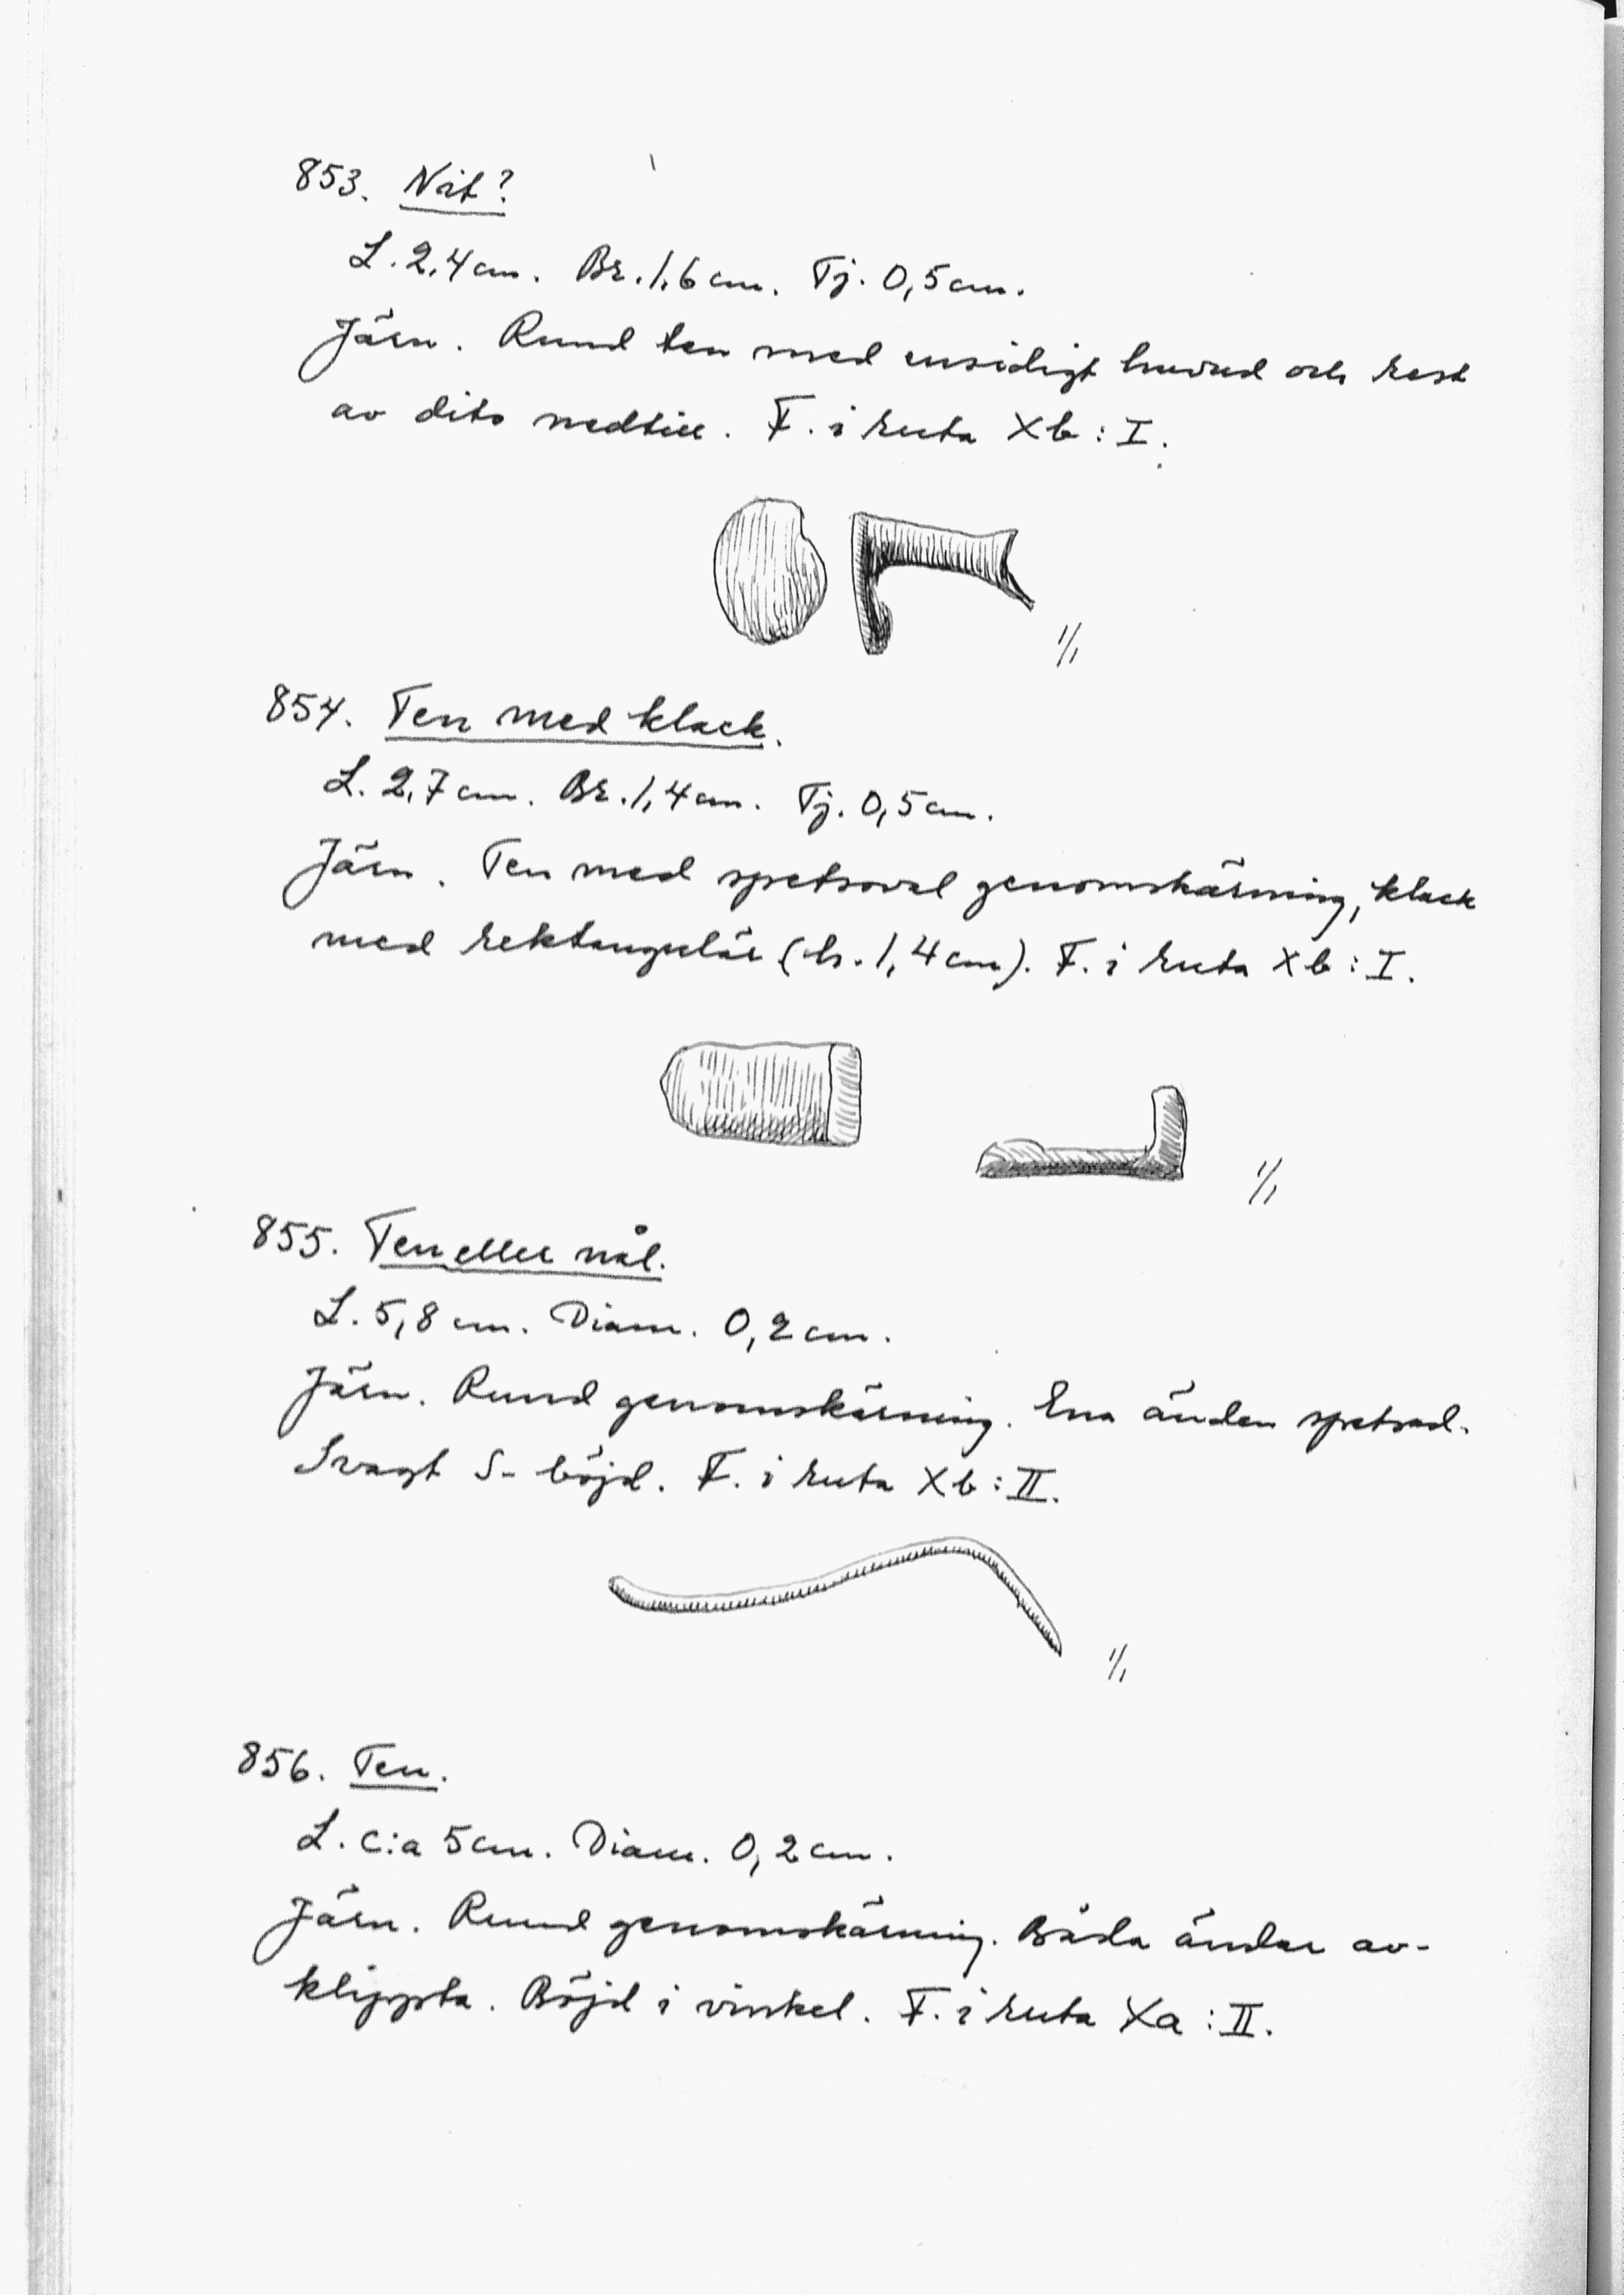 853. Nit?
L. 2,4 cm. Br. 1,6 cm. Tj. 0,5 cm.
Järn. Rund ten med ensidigt huvud och rest
av dito nedtill. F. i ruta Xb : I.
1/1
854. Ten med klack.
L. 2,7 cm. Br. 1,4 cm. Tj. 0,5 cm.
Järn. Ten med spetsoval genomskärning, klack
med rektangulär (h. 1,4 cm). F. i ruta Xb : I.
1/1
855. Ten eller nål.
L. 5,8 cm. Diam. 0,2 cm.
Järn. Rund genomskärning. Ena änden spetsad.
Svagt S- böjd. F. i ruta Xb : II.
1/1
856. Ten.
L. c:a 5 cm. Diam. 0,2 cm.
Järn. Rund genomskärning. Båda ändar av-
klippta. Böjd i vinkel. F. i ruta Xa : II.